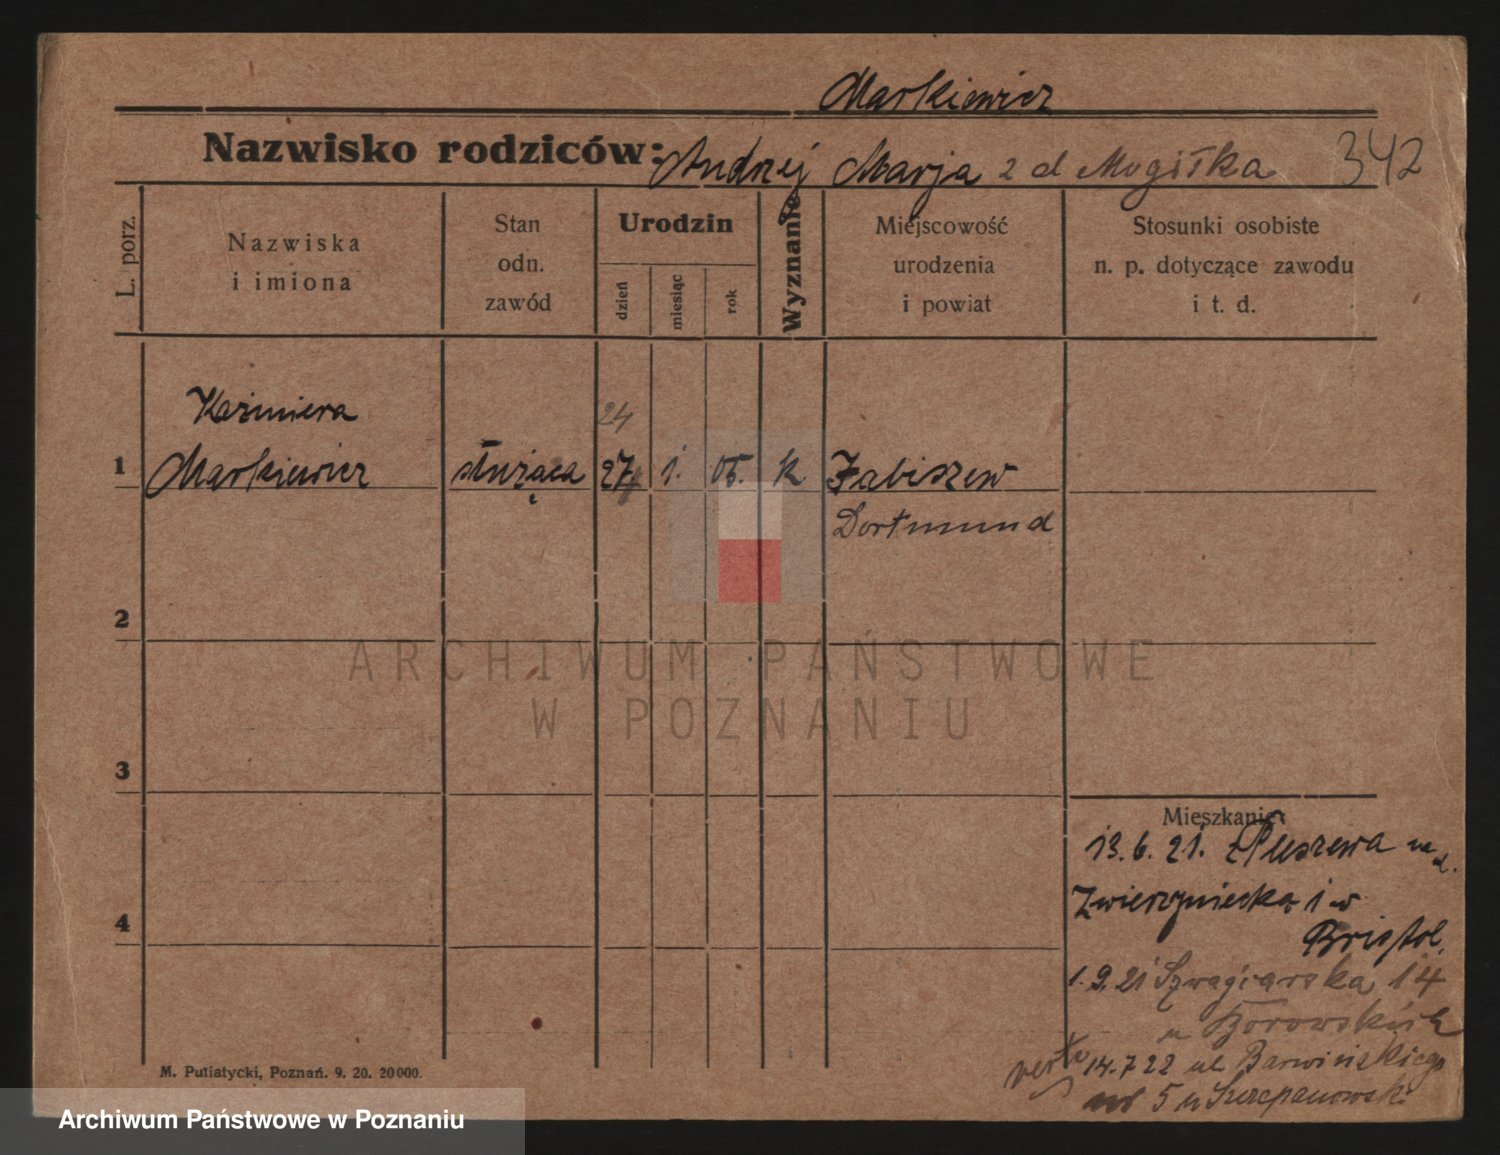 Markiewicz
Nazwisko rodziców: Andrzej Marja z d Mogiłka 342
L. porz.
Nazwiska
i imiona
Stan
odn.
zawód
Urodzin
dzień
miesiąc
rok
Wyznanie
Miejscowość
urodzenia
i powiat
Stosunki osobiste
n. p. dotyczące zawodu
i t. d.
Kaźmiera
24
1 Markiewicz służąca 27 1. 05. k Zabiszew
Dortmund
2
ARCHIWUM PAŃSTWOWE
W POZNANIU
3
4
Mieszkanie:
13. 6. 21. z Pleszewa
Zwierzyniecka 1 w
Bristol.
1. 9. 21 14
u Borowskich
verte 14. 7 22 ul Barwińskiego
5 u Szczepanowski
M. Putiatycki, Poznań. 9. 20. 20000.
Archiwum Państwowe w Poznaniu